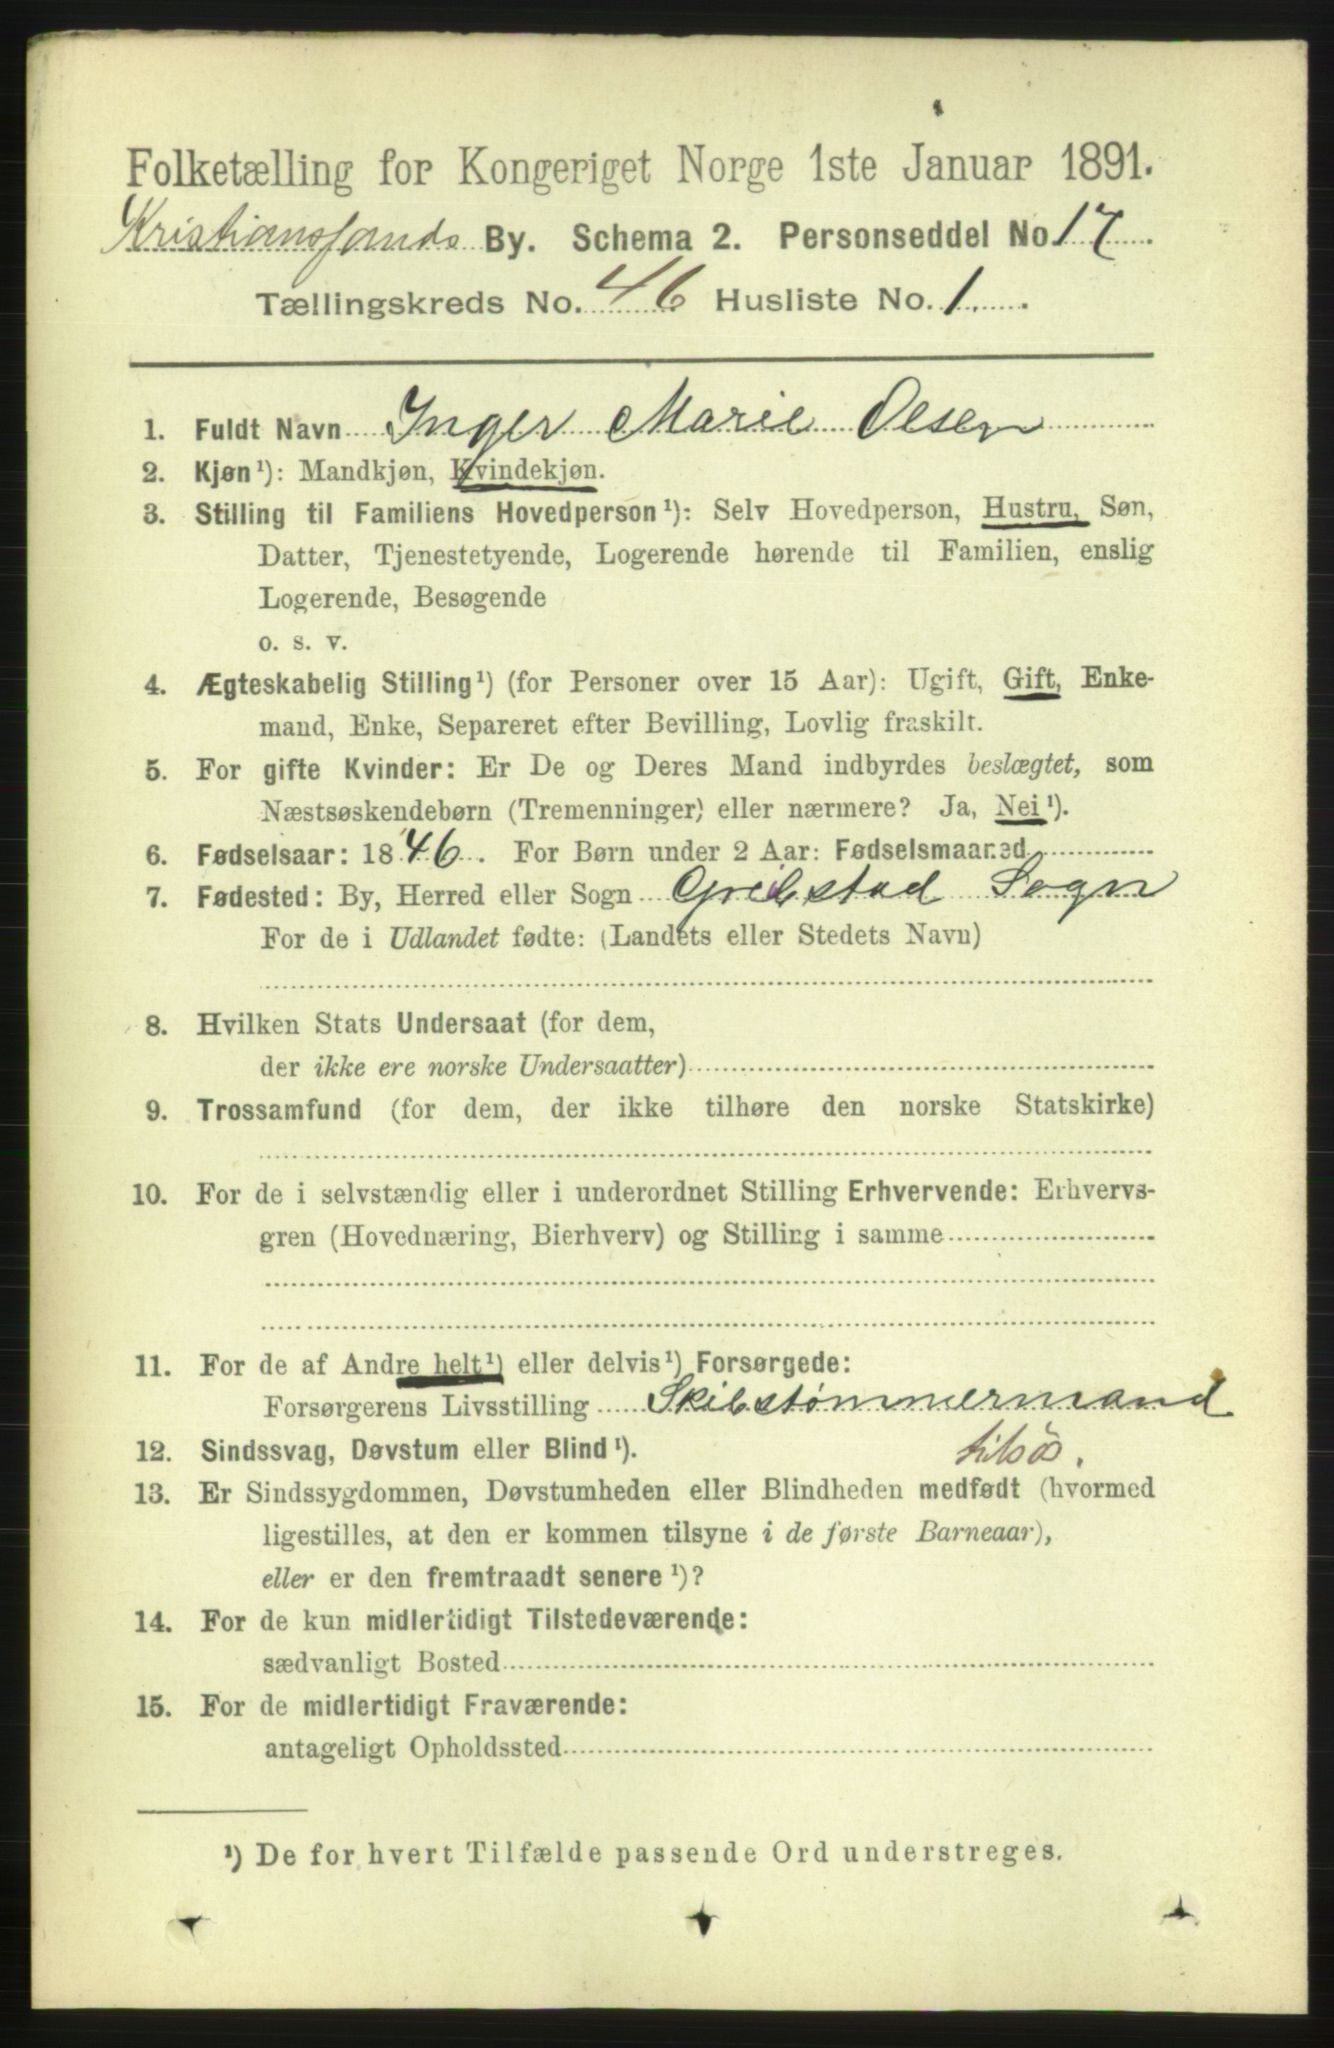 Folketælling for Kongeriget Norge 1ste Januar 1891.
Kristianssands By. Schema 2. Personseddel No 17
Tællingskreds No. 46 Husliste No. 1.
1. Fuldt Navn Inger Marie Olsen
2. Kjøn¹): Mandkjøn, Kvindekjøn.
3. Stilling til Familiens Hovedperson¹): Selv Hovedperson, Hustru, Søn,
Datter, Tjenestetyende, Logerende hørende til Familien, enslig
Logerende, Besøgende
o. s. v.
4. Ægteskabelig Stilling¹) (for Personer over 15 Aar): Ugift, Gift, Enke-
mand, Enke, Separeret efter Bevilling, Lovlig fraskilt.
5. For gifte Kvinder: Er De og Deres Mand indbyrdes beslægtet, som
Næstsøskendebørn (Tremenninger) eller nærmere? Ja, Nei¹).
6. Fødselsaar: 1846. For Børn under 2 Aar: Fødselsmaaned
7. Fødested: By, Herred eller Sogn Greibstad Sogn
For de i Udlandet fødte: (Landets eller Stedets Navn)
8. Hvilken Stats Undersaat (for dem,
der ikke ere norske Undersaatter)
9. Trossamfund (for dem, der ikke tilhøre den norske Statskirke)
10. For de i selvstændig eller i underordnet Stilling Erhvervende: Erhvervs-
gren (Hovednæring, Bierhverv) og Stilling i samme
11. For de af Andre helt¹) eller delvis¹) Forsørgede:
Forsørgerens Livsstilling Skibstømmermand
12. Sindssvag, Døvstum eller Blind¹). tilsøs.
13. Er Sindssygdommen, Døvstumheden eller Blindheden medfødt (hvormed
ligestilles, at den er kommen tilsyne i de første Barneaar),
eller er den fremtraadt senere¹)?
14. For de kun midlertidigt Tilstedeværende:
sædvanligt Bosted
15. For de midlertidigt Fraværende:
antageligt Opholdssted
¹) De for hvert Tilfælde passende Ord understreges.